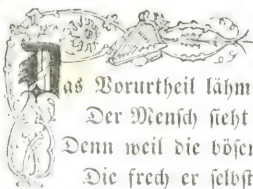 Das Vorurtheil lähm
Der Mensch sieht
Denn weil die böser
Die frech er selbst